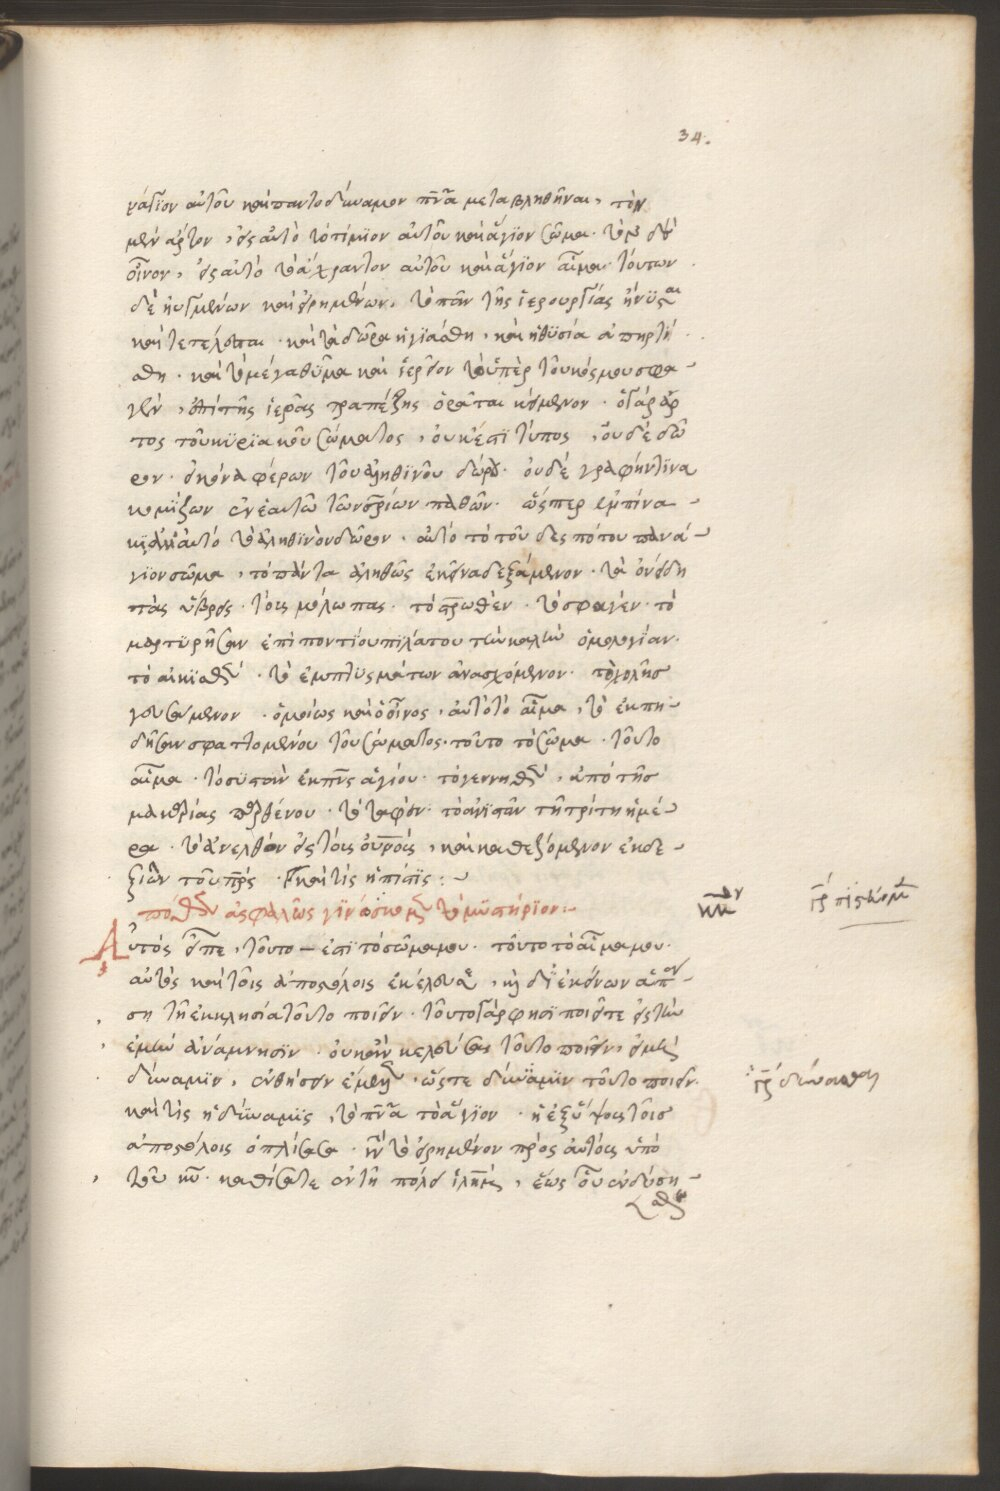 νάγϊον αὐτοῦ καὶ παντοδύναμον π̅ν̅α μεταβληθῆναι, τὸν
μὲν ἄρτον, εἰς αὐτὸ τὸ τίμϊον αὐτοῦ καὶ ἅγϊον σῶμα· τὸν δὲ
οἶνον, εἰς αὐτὸ τὸ ἄχραντον αὐτοῦ καὶ ἅγϊον αἷμα· τούτων
δὲ ηὐγμένων καὶ εἰρημένων, τὸ πᾶν τῆς ἱερουργίας ἤνϋσται
καὶ τετέλεσται· καὶ τὰ δῶρα ἡγϊάσθη, καὶ ἡ θϋσία ἀπηρτί
σθη· καὶ τὸ μέγα θῦμα καὶ ἱερεῖον τὸ ὑπὲρ τοῦ κόσμου σφα-
γὲν, ἐπὶ τῆς ἱερᾶς τραπέζης ὁρᾶται κείμενον· ὁ γὰρ ἄρ
τος τοῦ κϋρϊακοῦ σώματος, οὐκ ἔστϊ τύπος, οὐδὲ δῶ
ρον· εἰκόνα φέρων τοῦ ἀληθϊνοῦ δώρου· οὐδὲ γραφήν τϊνα
κομίζων ἐν ἑαυτῶ τῶν σ̅ρ̅ίων παθῶν· ὥσπερ ἐμπίνα-
κϊ ἀλλ' αὐτὸ τὸ ἀληθϊνὸν δῶρον· αὐτό τὸ τοῦ δεσπότου πανά-
γϊον σῶμα, τὸ πάντα ἀληθῶς ἐκεῖνα δεξάμενον· τὰ ὀνείδη
τὰς ὕβρεις· τοὺς μώλωπας· τὸ σ̅ρ̅ωθὲν· τὸ σφαγέν· τὸ
μαρτϋρῆσαν ἐπὶ ποντίου πϊλάτου τὴν καλὴν ὁμολογίαν·
τὸ αἰκϊσθέν· τὸ ἐμπτϋσμάτων ἀνασχόμενον· τὸ χολῆσ
γευσάμενον· ὁμοίως καὶ ὁ οἶνος, αὐτὸ τὸ αἷμα, τὸ ἐκπη-
δῆσαν σφαττομένου τοῦ σώματος· τοῦτο τὸ σῶμα· τοῦτο
αἷμα· τὸ συστὰν ἐκ π̅ν̅ς ἁγίου· τὸ γεννηθὲν, ἀπὸ τῆσ
μακαρίας παρθένου· τὸ ταφὲν· τὸ ἀνϊστὰν τῇ τρίτη ἡμέ-
ρα· τὸ ἀνελθὸν εἰς τοὺς οὐ̅ρ̅οὺς, καὶ καθεζόμενον ἐκ δε-
ξϊῶν τοῦ π̅ρ̅ς· καὶ τίς ἡ πίστϊς:-
πόθεν ἀσφαλῶς γϊνώσκομεν τὸ μϋστήριον:-
Αὐτός εἶπε, τοῦτο - ἐστϊ τὸ σῶμα μου· τοῦτο τὸ αἷμα μου·
αὐτὸς καὶ τοῖς ἀποστόλοις ἐκέλευσε, κ δϊ' ἐκείνων ἁπά-
ση τῆ ἐκκλησία τοῦτο ποιεῖν· τοῦτο γάρ φησϊ ποιεῖτε εἰς τὴν
ἐμὴν ἀνάμνησϊν· οὐκ ἂν κελεύσας τοῦτο ποιεῖν, εἰ μὴ
δύναμϊν, ἐνθήσειν ἔμελλεν· ὥστε δύναμϊν τοῦτο ποιεῖν·
καὶ τίς ἡ δύναμϊς, τὸ π̅ν̅α τὸ ἅγϊον· ἡ ἐξ ὕψους τοὺσ
ἀποστόλους ὁπλίσασα· κατὰ τὸ εἰρημένον πρὸς αὐτοὺς ὑπὸ
τοῦ κ̅υ· καθίσατε ἐν τῆ πόλει ἱλήμ, ἕως οὗ ἐνδύση-
σθε